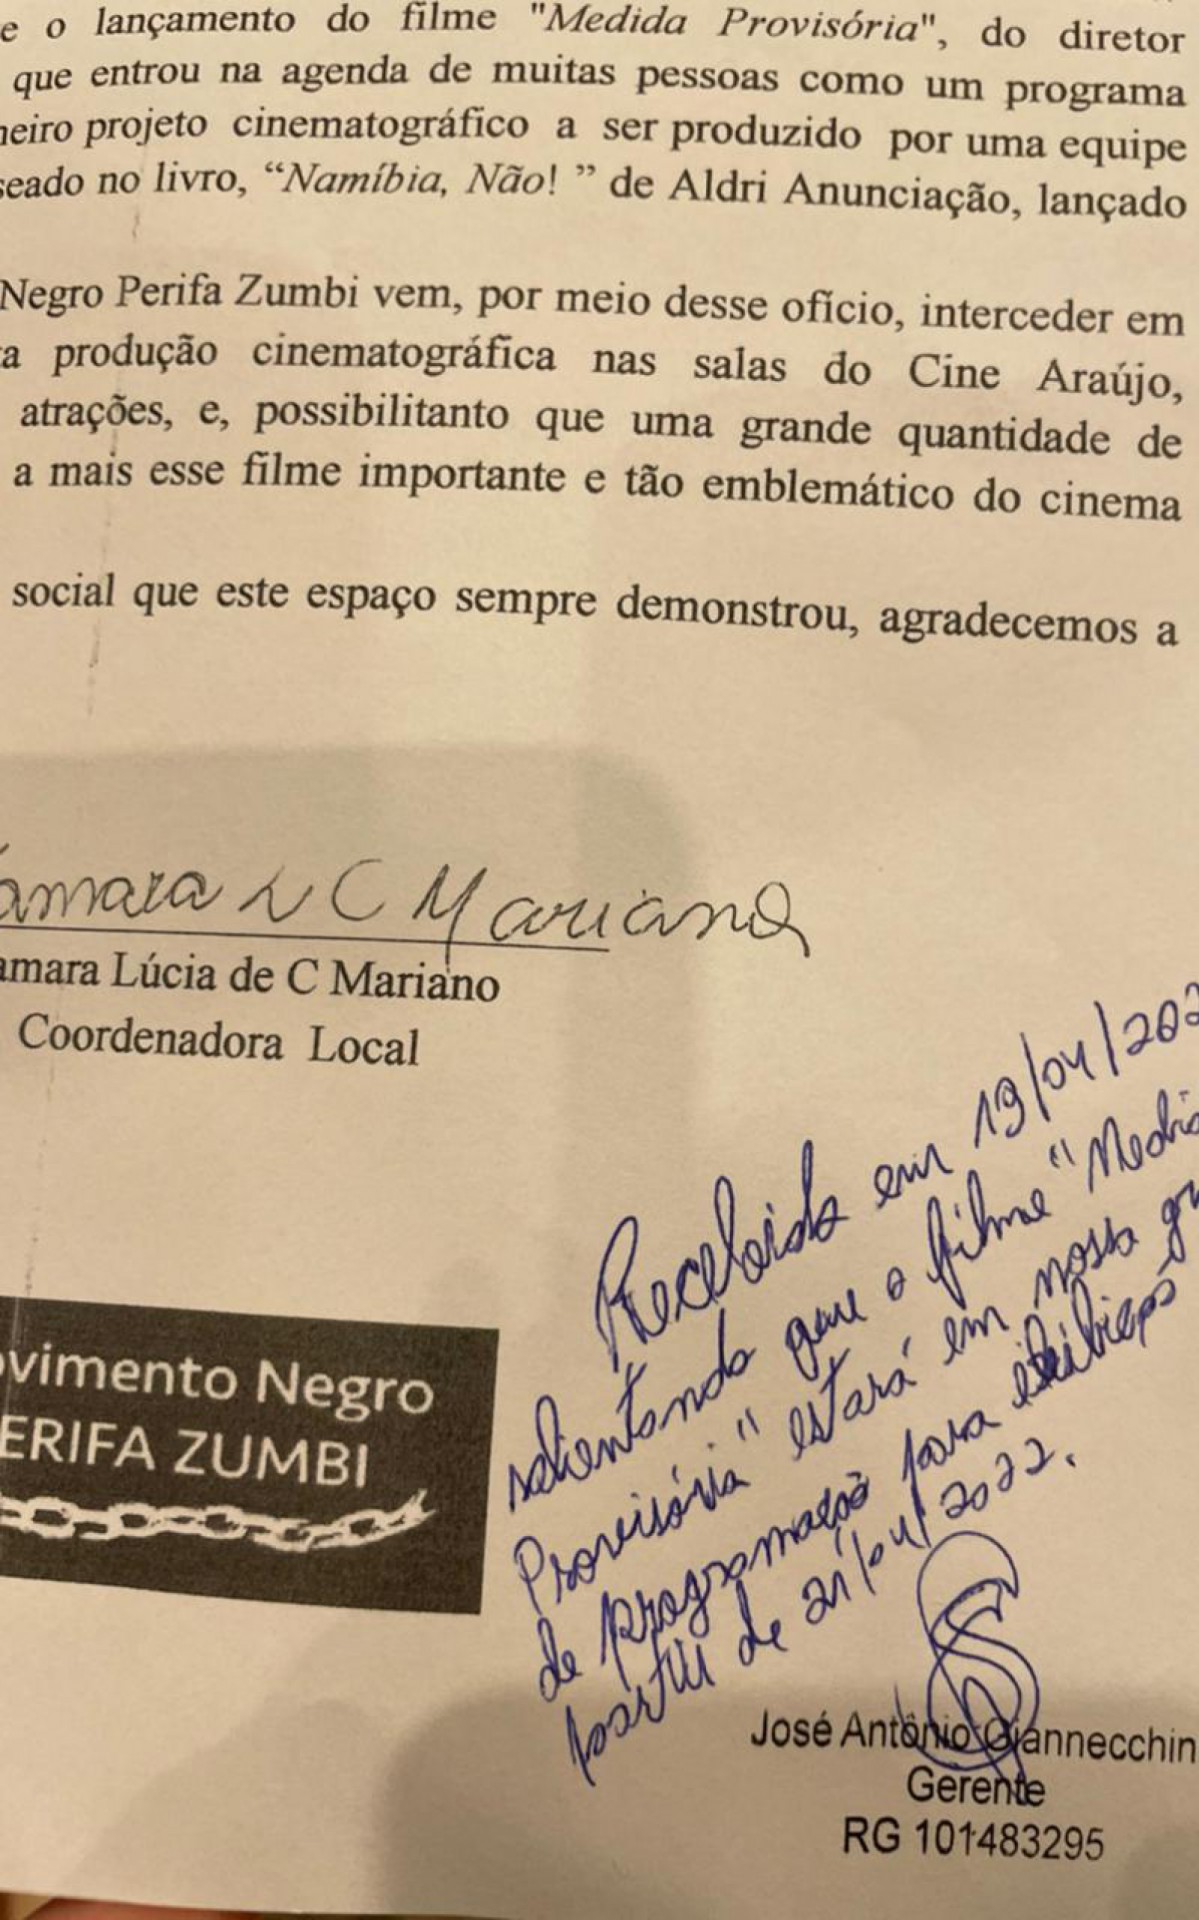 e o lançamento do filme "Medida Provisória", do diretor
que entrou na agenda de muitas pessoas como um programa
neiro projeto cinematográfico a ser produzido por uma equipe
seado no livro, “Namíbia, Não! ” de Aldri Anunciação, lançado
Negro Perifa Zumbi vem, por meio desse ofício, interceder em
a produção cinematográfica nas salas do Cine Araújo,
atrações, e, possibilitanto que uma grande quantidade de
a mais esse filme importante e tão emblemático do cinema
social que este espaço sempre demonstrou, agradecemos a
amara L C Mariano
amara Lúcia de C Mariano
Coordenadora Local
ovimento Negro
ERIFA ZUMBI
Recebido em 19/04/202
salientando que o filme "Medid
Provisória" estará em nossa gr
de programação para exibição
partir de 21/04/2022.
José Antônio Giannecchin
Gerente
RG 101483295